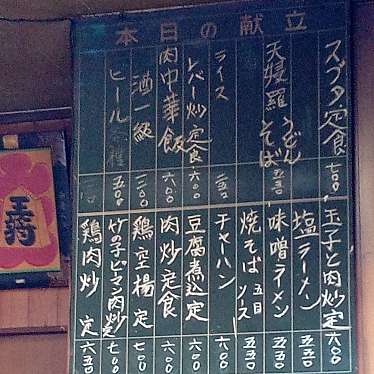 本日の献立
スブタ定食 七〇〇
天婦羅 うどん そば 五五〇
ライス
レバー炒定食 六〇〇
肉中華飯 六〇〇
酒一級 三〇〇
ビール 各種 五〇〇
玉子と肉炒定 六〇〇
塩ラーメン 五五〇
味噌ラーメン 五五〇
焼そば 五目 ソース 五五〇
チャーハン 六〇〇
豆腐煮込定 六〇〇
肉炒定食 六〇〇
鶏空揚定 七〇〇
竹の子ピーマン肉炒定 七〇〇
鶏肉炒 定 六五〇